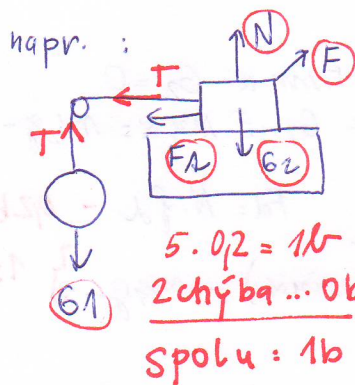 napr. :
N
F
T
T
F1
G2
G1
5.0,2 = 1b
2 chýba ... 0b
spolu : 1b